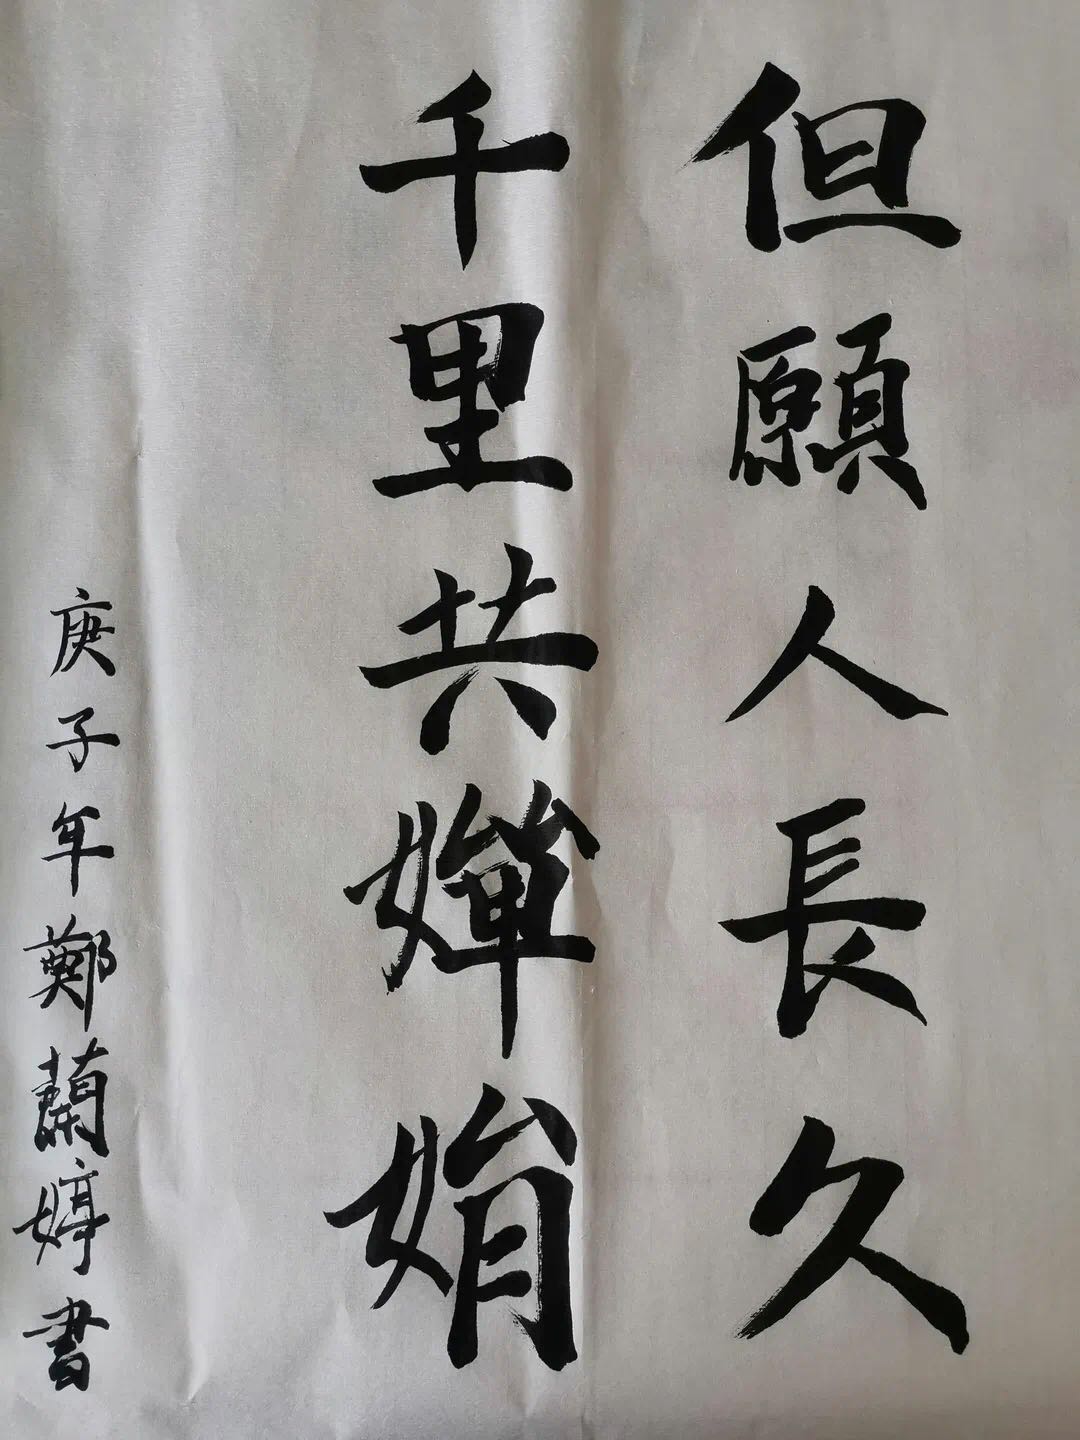 但願人長久
千里共嬋娟
庚子年鄭蘭婷書